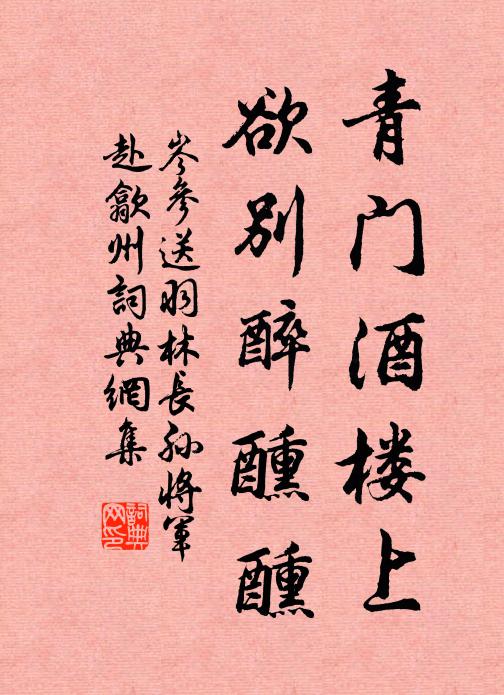 青门酒楼上
欲别醉醺醺
岑參送羽林長孫將軍
赴歙州詞典網集
詞典
网印